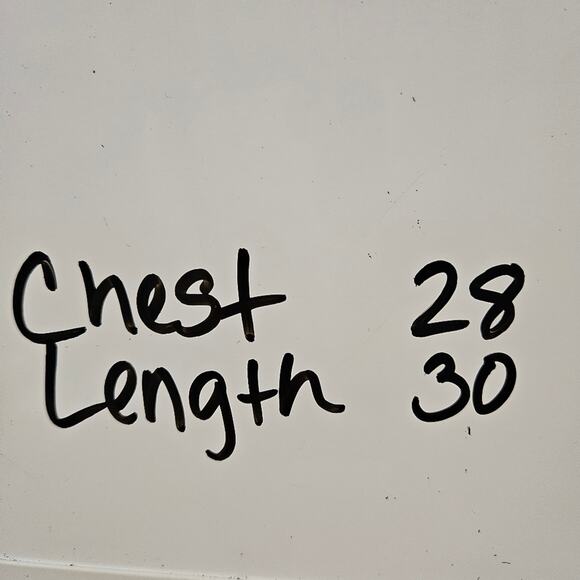 Chest 28
Length 30